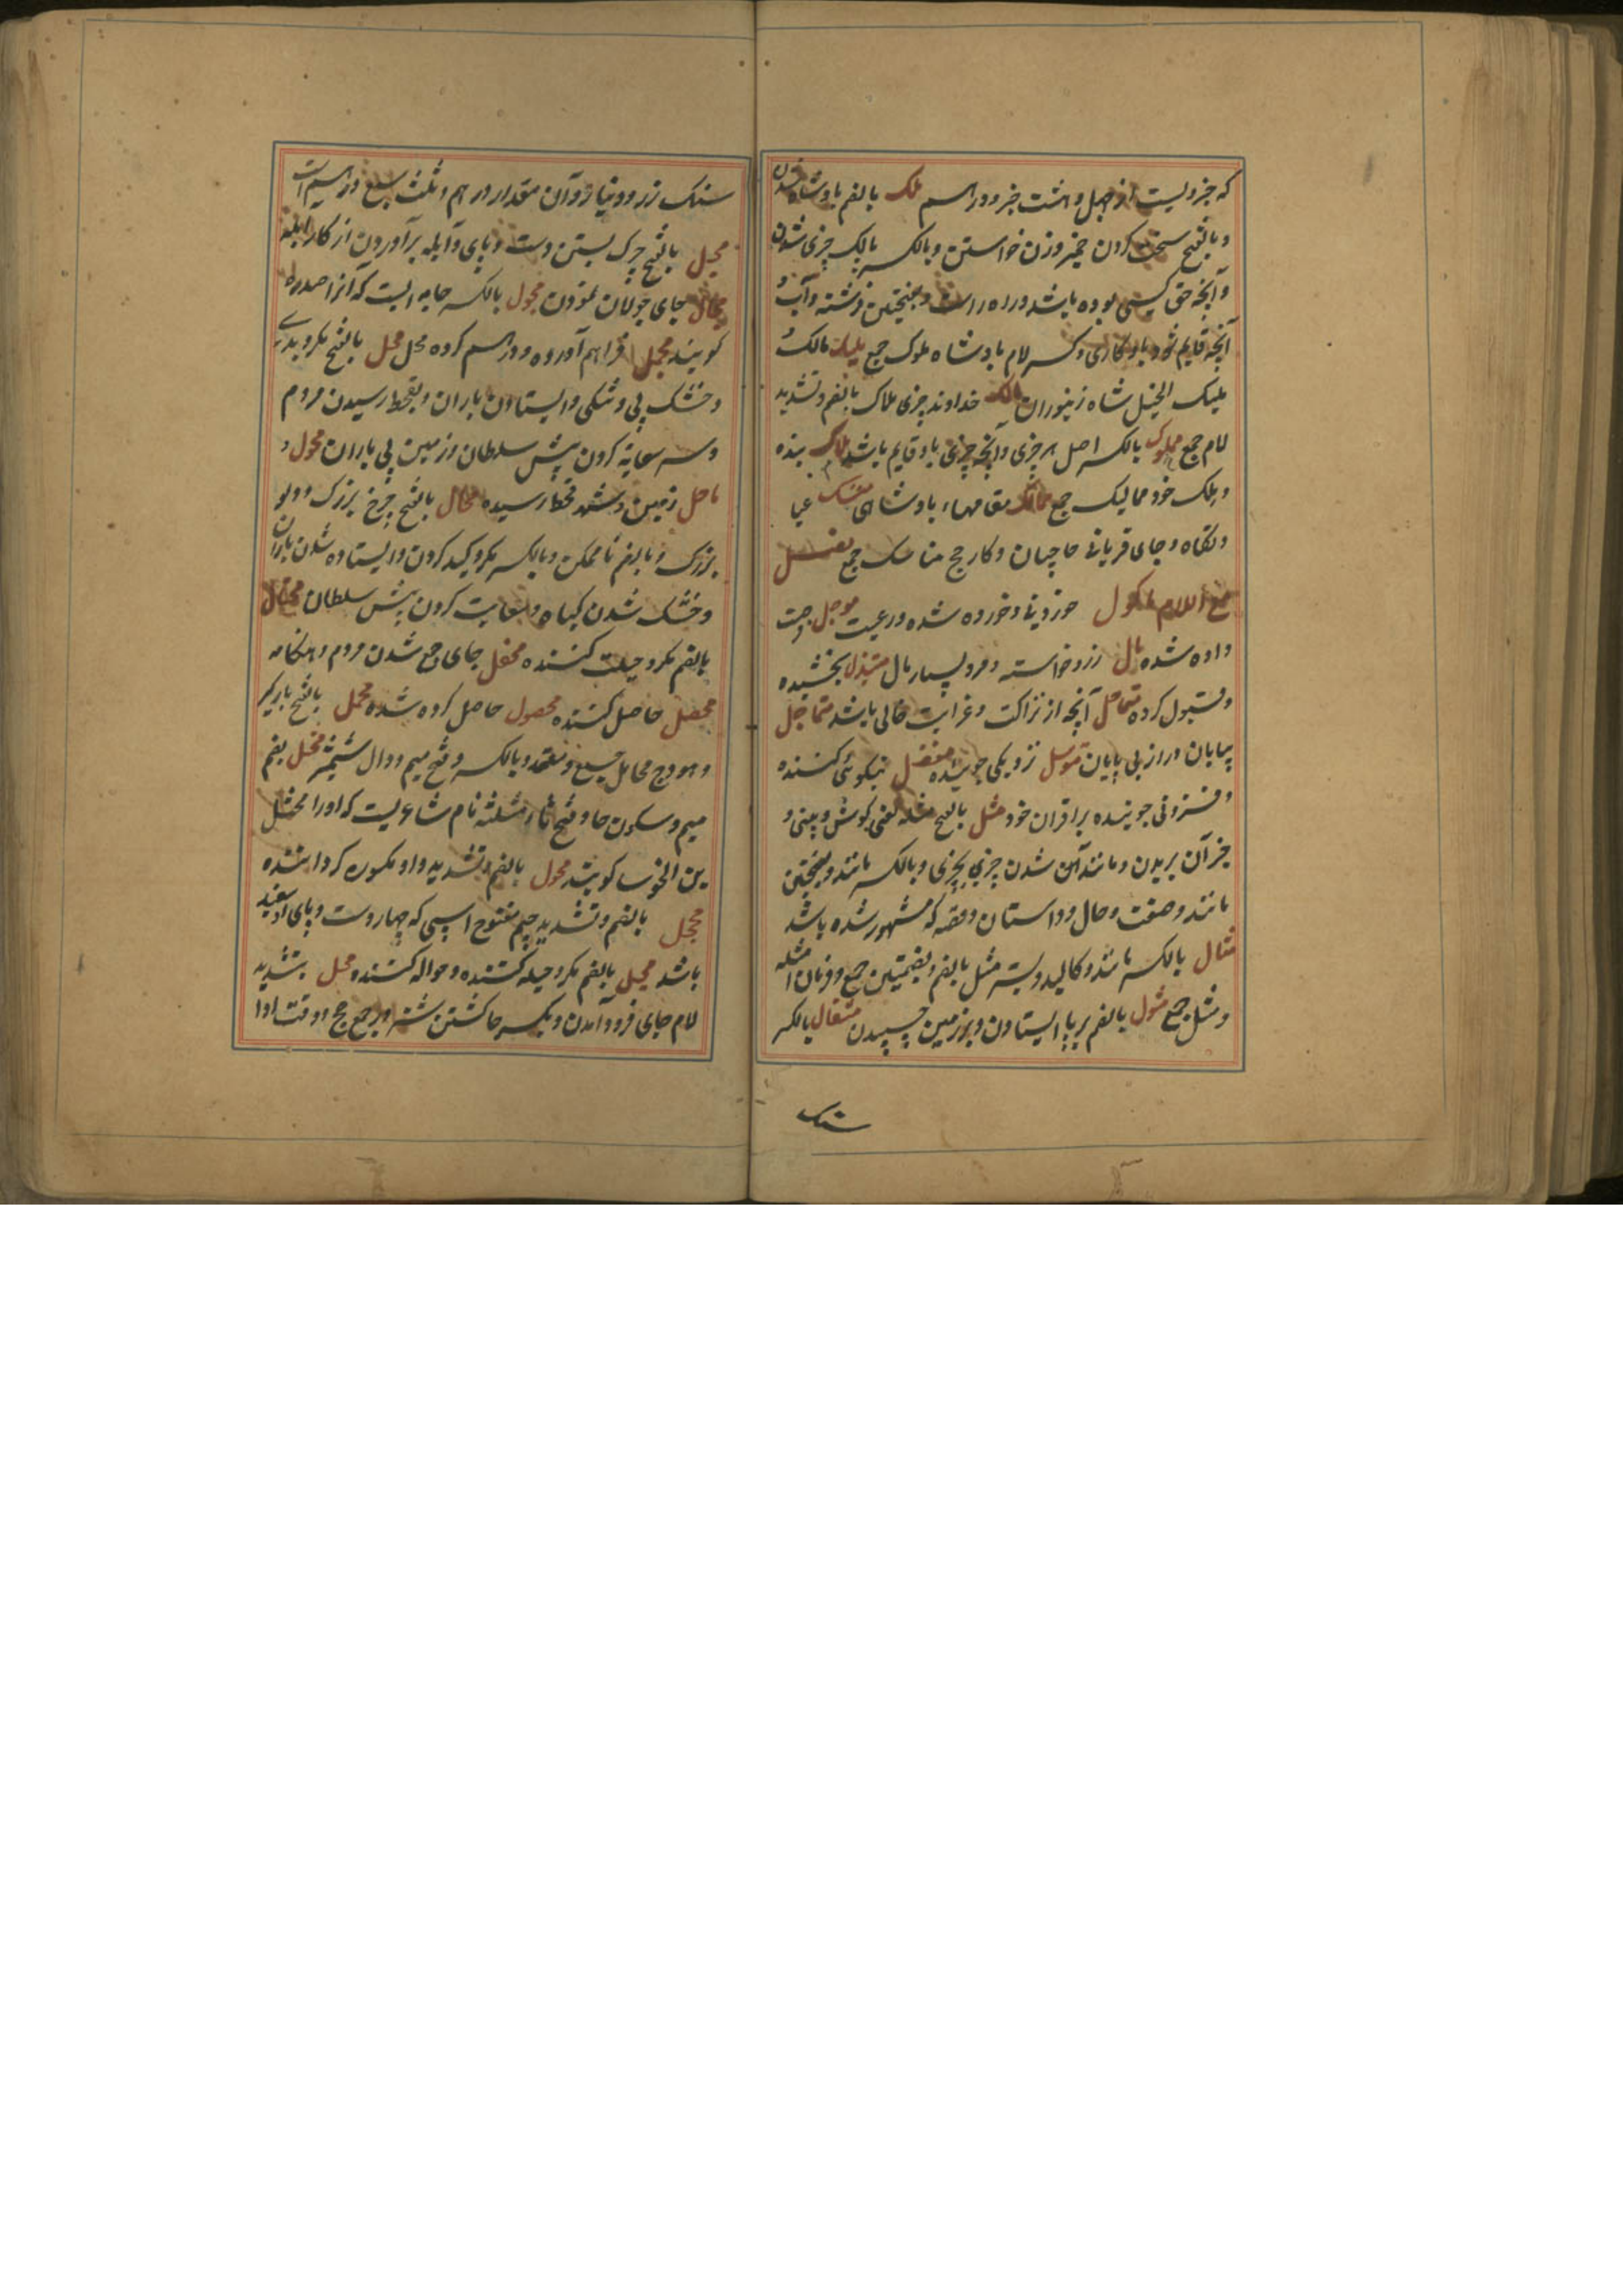 که جزویست از چهل و هشت جزو درهم ملک بالضم بادشاه شدن
و بالفتح سخت کردن خمیر و زن خواستن و بالکسر مالک چیزی شدن
و آنچه حق کسی بوده باشد و راه راست و بفتحتین فرشته و آب و
آنچه قایم شود باو کاری و کسر لام بادشاه ملوک جمع ملیک مالک
ملیک النحل شاه زنبوران مالک خداوند چیزی ملاک بالضم و تشدید
لام جمع ملوک بالکسر اصل هر چیزی و آنچه چیزی باو قایم باشد بنده
و ملک خود ممالیک جمع ممالک مقامهاء بادشاهی منسک عبا
دتگاه و جای قربانی حاجیان و کار حج مناسک جمع فصل
مع اللام ماکول خوردنی و خورده شده و رعیت موجل
داده شده مال زر و خواسته و مرد بسیار مال متبذل بخشیده
و قبول کرده متماحل آنچه از نزاکت و غرابت خالی باشد متماحل
بیابان دراز بی پایان متوسل نزدیکی جوینده متفضل نیکوئی کننده
و فزونی جوینده بر اقران خود مثل بالفتح مثله یعنی گوش و بینی و
جز آن بریدن و مانند آن شدن چیزی بچیزی و بالکسر مانند و بفتحتین
مانند و صفت و حال و داستان و قصه که مشهور شده باشد
مثال بالکسر مانند و کالبد و بستر مثل بالضم و بضمتین جمع و فرمان امثله
و مثل جمع مثول بالضم بر پا ایستادن و بر زمین چسپیدن مثقال بالکسر
سنک
سنک زر و دینار و آن مقدار درهم و ثلث سبع درهم است
مجل بالفتح چرک بستن دست و پای و آبله برآوردن از کار
مجال جای جولان نمودن مجول بالکسر جامه ایست که آنرا صدره
گویند مجمل فراهم آورده و درهم کرده محل محل بالفتح مکر و بدی
و خشک پی و تنکی و ایستادن باران و بقحط رسیدن مردم
و سعایة کردن پیش سلطان و زمین بی باران محول و
ماحل زمین و شهر قحط رسیده محال بالفتح چرخ بزرک و دلو
بزرک و بالضم ناممکن و بالکسر مکر و کید کردن و ایستاده شدن باران
و خشک شدن گیاه و سعایت کردن پیش سلطان محتال
بالضم مکر و حیلت کننده محفل جای جمع شدن مردم و هنکامه
محصل حاصل کننده محصول حاصل کرده شده محمل بالفتح بارگیر
و هودج محامل جمع و معتمد و بالکسر و فتح میم دوال شمشیر مخبل بضم
میم و سکون حا و فتح ثاء مثلثه نام شاعریست که او را
بن الخوب گویند محول بالضم و تشدید واو مکسوره گرداننده
محجل بالضم و تشدید جیم مفتوح اسپی که چهار دست و پای او سفید
باشد محیل بالضم مکر و حیله کننده و حواله کننده محل بتشدید
لام جای فرود آمدن و بکسر حا کشتن شتر در حج و وقت ادا